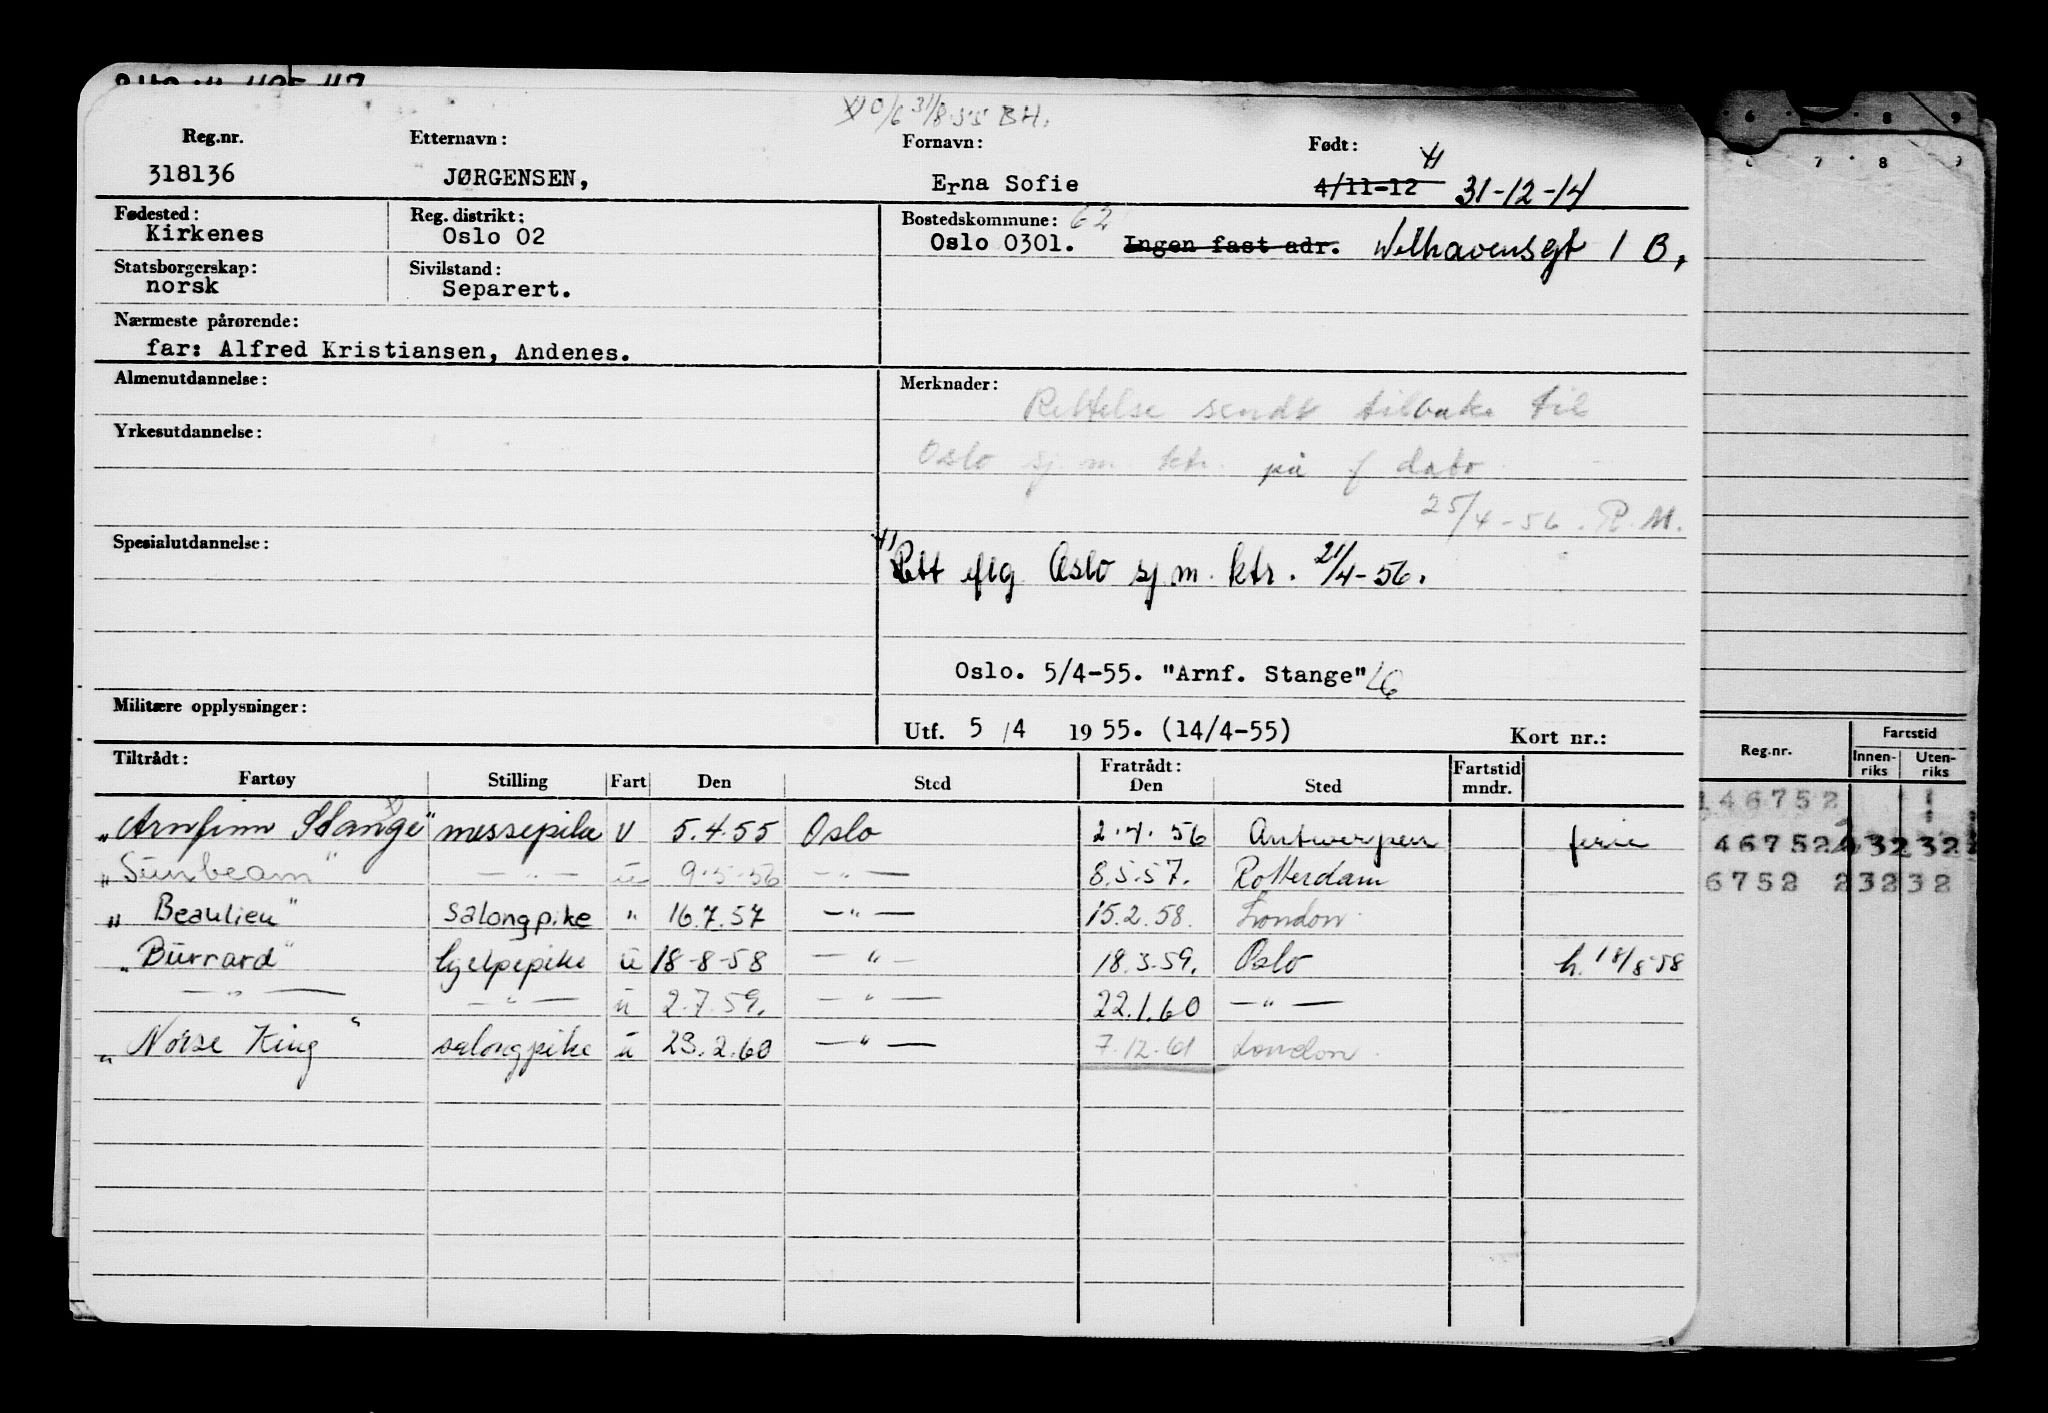 0/6 31/8 55 BH.
Reg.nr. Etternavn: Fornavn: Født:
318136 JØRGENSEN, Erna Sofie 4/11-12 31-12-14
Fødested: Reg. distrikt: Bostedskommune: 62
Kirkenes Oslo 02 Oslo 0301. Ingen fast adr. Welhavensgt 1 B,
Statsborgerskap: Sivilstand:
norsk Separert.
Nærmeste pårørende:
far: Alfred Kristiansen, Andenes.
Almenutdannelse: Merknader:
Rettelse sendt tilbake til
Yrkesutdannelse:
Oslo sj. m. ktr. på f dato
25/4-56. R.M.
Spesialutdannelse:
Rett eflg Oslo sj.m. ktr. 21/4-56.
Oslo. 5/4-55. "Arnf. Stange"
Militære opplysninger:
Utf. 5/4 1955. (14/4-55) Kort nr.:
Tiltrådt: Fratrådt:
Fartøy Stilling Fart Den Sted Den Sted Fartstid mndr.
"Arnfinn Stange" messepike U 5.4.55 Oslo 2.4.56 Antwerpen ferie
"Sunbeam" —"— u 9.5.56 —"— 8.5.57. Rotterdam
"Beaulieu" salongpike " 16.7.57 —"— 15.2.58. London.
"Burrard" hjelpepike u 18-8-58 —"— 18.3.59. Oslo h. 18/8 58
—"— —"— u 2.7.59. —"— 22.1.60 —"—
"Norse King" salongpike u 23.2.60 —"— 7.12.61 London.
6 8 9
7 8
Reg.nr. Fartstid
Innen-riks Uten-riks
146752
46752 232 232
6752 23232